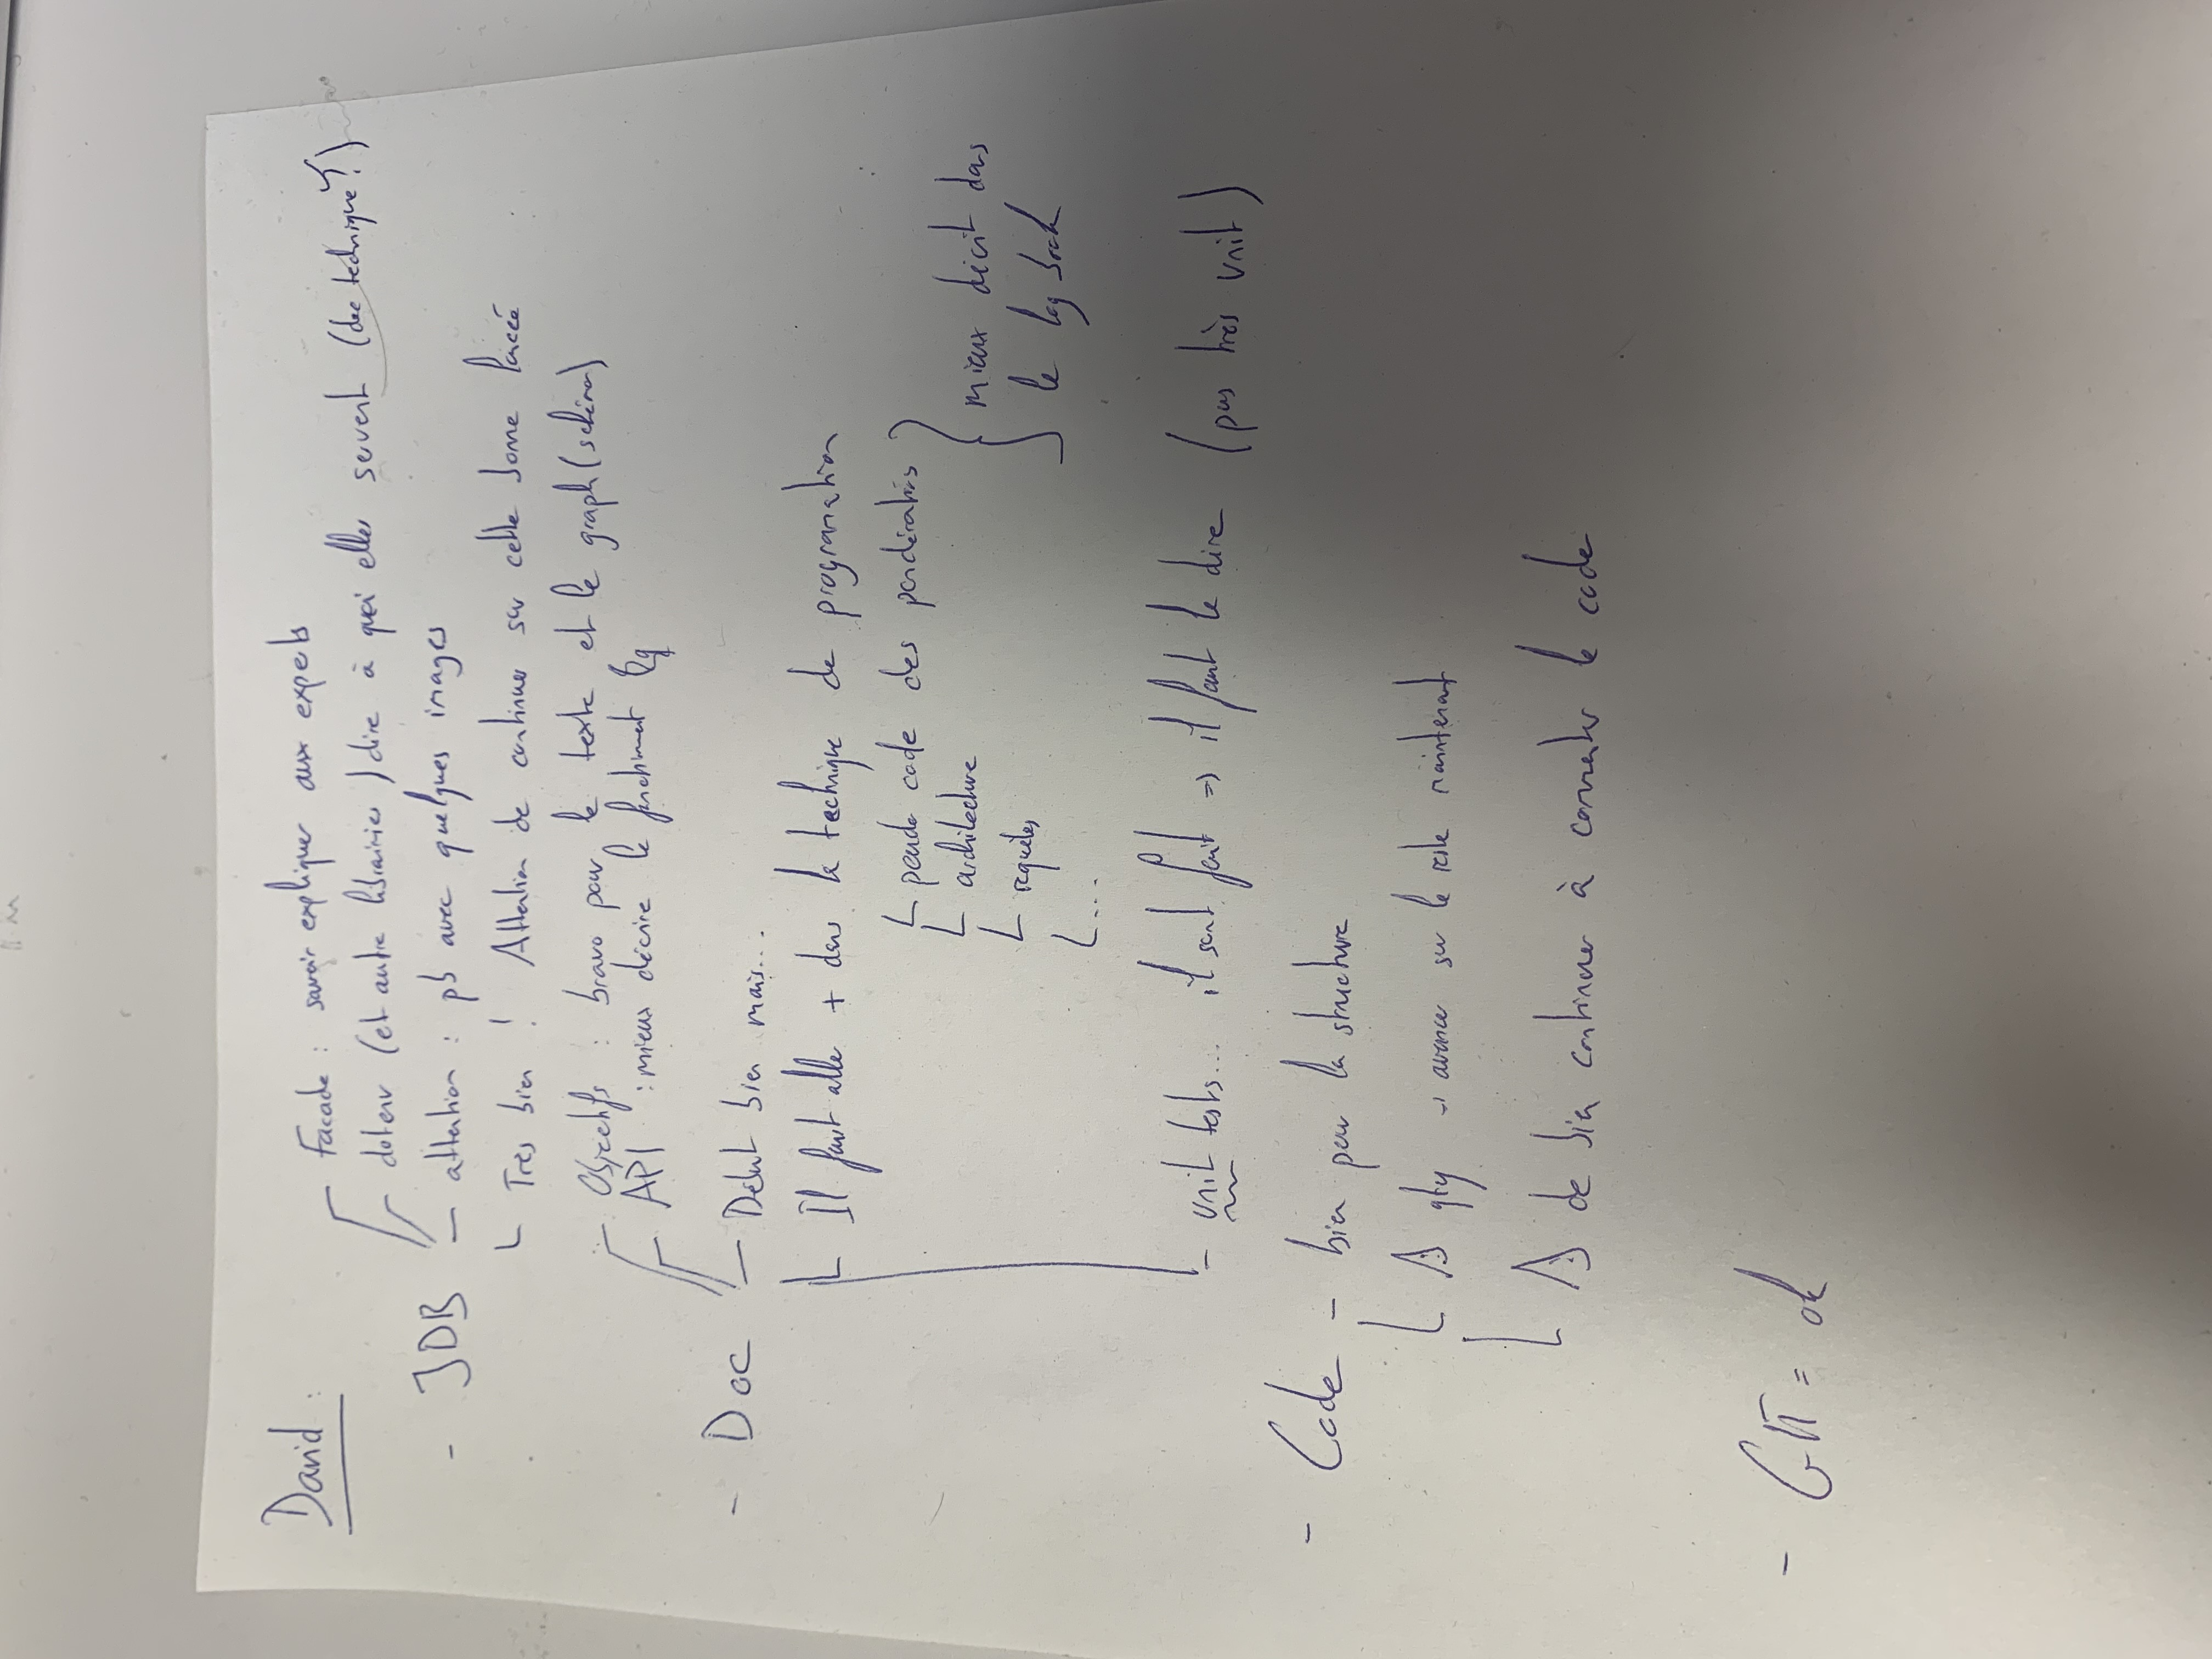 David :
Facade : savoir expliquer aux experts
dotenv (et autre librairies) dire à quoi elles servent (doc technique ?)
- JDB - attention : pb avec quelques images
Très bien ! Attention de continuer sur cette bonne lancée
Objectifs : bravo pour le texte et le graph (schéma)
API : mieux décrire le
- Doc - Début bien mais...
Il faut aller + dans la technique de programation
code des
architecture
requêtes
...
mieux décrit dans
le log book
- unit tests... il sont fait => il faut le dire (pas très unit)
- Code - bien pour la structure
qty -> avancer sur le reste maintenant
de bien continuer à commenter le code
- = ok